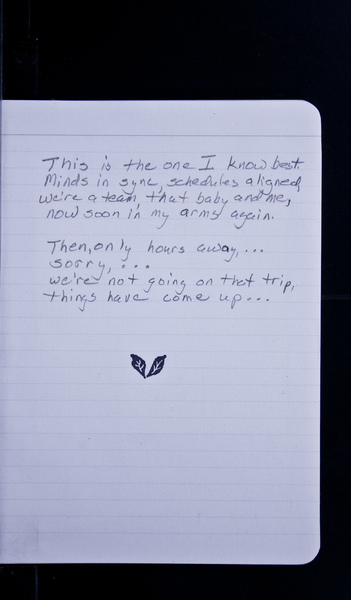 This is the one I know best
Minds in sync, schedules aligned,
we're a team, that baby and me,
now soon in my arms again.
Then, only hours away,...
sorry,...
we're not going on that trip,
things have come up...